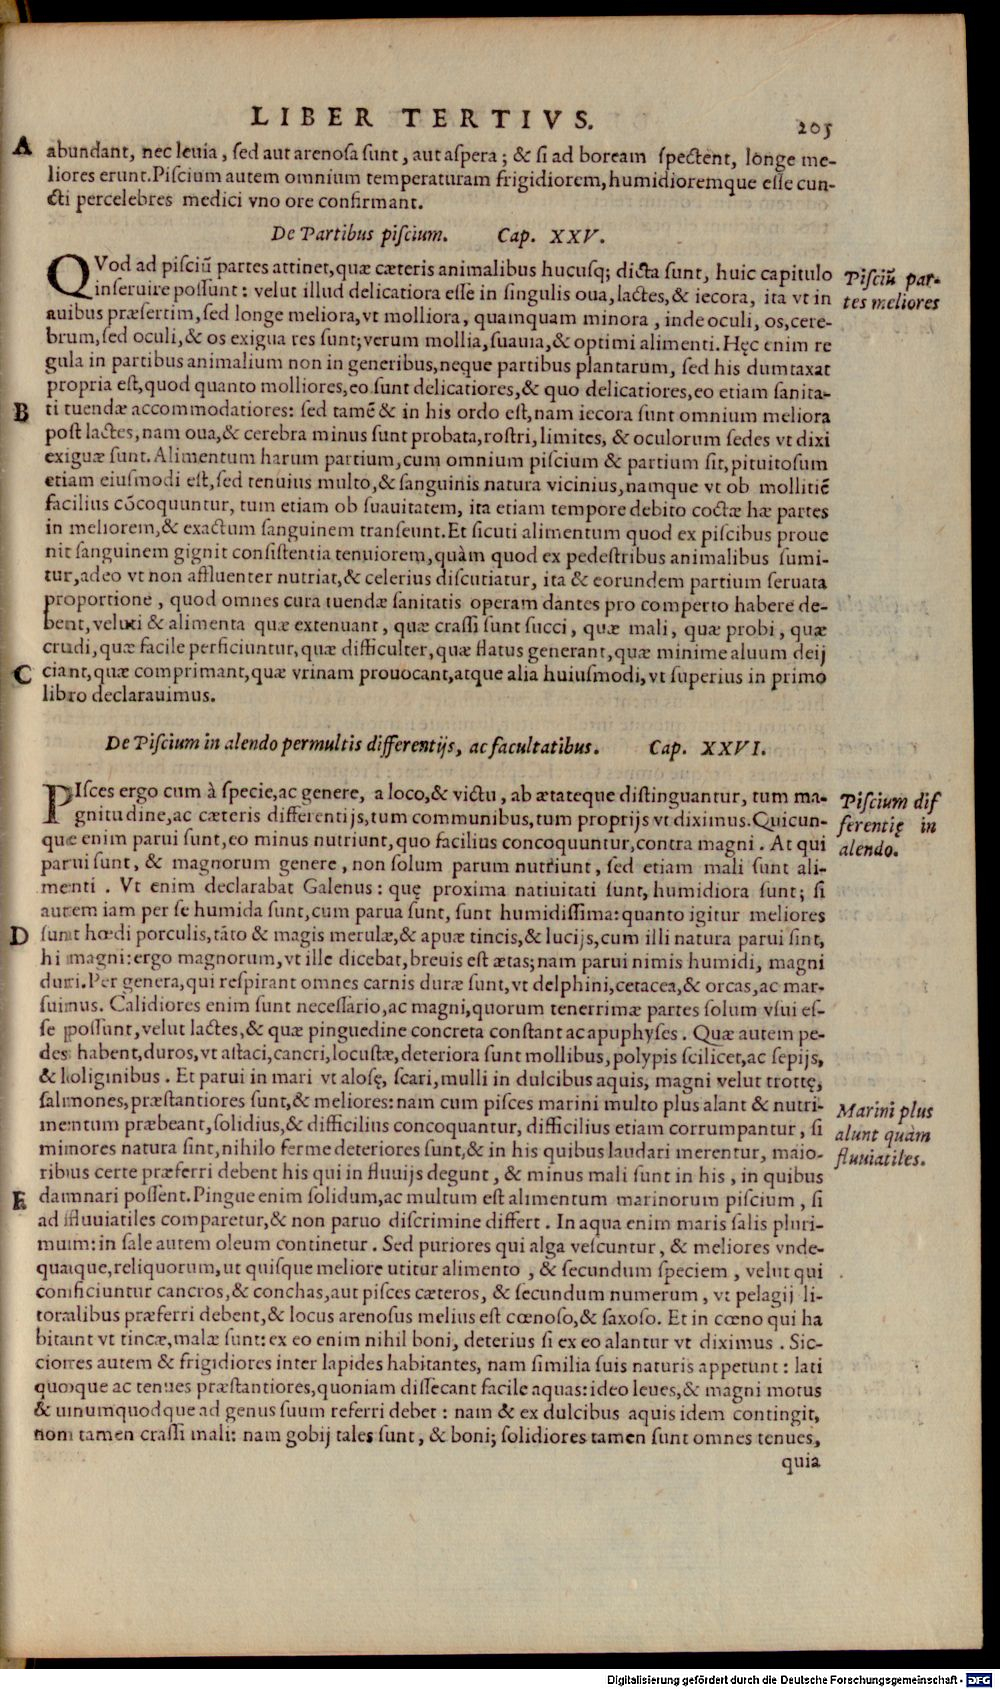 LIBER TERTIVS.
205
A
abundant, nec leuia, sed aut arenosa sunt, aut aspera; & si ad boream spectent, longe me-
liores erunt. Piscium autem omnium temperaturam frigidiorem, humidioremque esse cun-
cti percelebres medici vno ore confirmant.
De Partibus piscium. Cap. XXV.
QVod ad pisciū partes attinet, quæ cæteris animalibus hucusq; dicta sunt, huic capitulo
inseruire possunt: velut illud delicatiora esse in singulis oua, lactes, & iecora, ita vt in
auibus præsertim, sed longe meliora, vt molliora, quamquam minora, inde oculi, os, cere-
brum, sed oculi, & os exigua res sunt; verum mollia, suauia, & optimi alimenti. Hęc enim re
gula in partibus animalium non in generibus, neque partibus plantarum, sed his dumtaxat
propria est, quod quanto molliores, eo sunt delicatiores, & quo delicatiores, eo etiam sanita-
B
ti tuendæ accommodatiores: sed tamē & in his ordo est, nam iecora sunt omnium meliora
post lactes, nam oua, & cerebra minus sunt probata, rostri, limites, & oculorum sedes vt dixi
exiguæ sunt. Alimentum harum partium, cum omnium piscium & partium sit, pituitosum
etiam eiusmodi est, sed tenuius multo, & sanguinis natura vicinius, namque vt ob mollitiē
facilius cōcoquuntur, tum etiam ob suauitatem, ita etiam tempore debito coctæ hæ partes
in meliorem, & exactum sanguinem transeunt. Et sicuti alimentum quod ex piscibus proue
nit sanguinem gignit consistentia tenuiorem, quàm quod ex pedestribus animalibus sumi-
tur, adeo vt non affluenter nutriat, & celerius discutiatur, ita & eorundem partium seruata
proportione, quod omnes cura tuendæ sanitatis operam dantes pro comperto habere de-
bent, veluti & alimenta quæ extenuant, quæ crassi sunt succi, quæ mali, quæ probi, quæ
crudi, quæ facile perficiuntur, quæ difficulter, quæ flatus generant, quæ minime aluum deij
C
ciant, quæ comprimant, quæ vrinam prouocant, atque alia huiusmodi, vt superius in primo
libro declarauimus.
Pisciū par-
tes meliores
De Piscium in alendo permultis differentijs, ac facultatibus. Cap. XXVI.
PIsces ergo cum à specie, ac genere, a loco, & victu, ab ætateque distinguantur, tum ma-
gnitudine, ac cæteris differentijs, tum communibus, tum proprijs vt diximus. Quicun-
que enim parui sunt, eo minus nutriunt, quo facilius concoquuntur, contra magni. At qui
parui sunt, & magnorum genere, non solum parum nutriunt, sed etiam mali sunt ali-
menti. Vt enim declarabat Galenus: quę proxima natiuitati sunt, humidiora sunt; si
autem iam per se humida sunt, cum parua sunt, sunt humidissima: quanto igitur meliores
D
sunt hœdi porculis, tāto & magis merulæ, & apuæ tincis, & lucijs, cum illi natura parui sint,
hi magni: ergo magnorum, vt ille dicebat, breuis est ætas; nam parui nimis humidi, magni
duri. Per genera, qui respirant omnes carnis duræ sunt, vt delphini, cetacea, & orcas, ac mar-
suimus. Calidiores enim sunt necessario, ac magni, quorum tenerrimæ partes solum vsui es-
se possunt, velut lactes, & quæ pinguedine concreta constant ac apuphyses. Quæ autem pe-
des habent, duros, vt astaci, cancri, locustæ, deteriora sunt mollibus, polypis scilicet, ac sepijs,
& loliginibus. Et parui in mari vt alosę, scari, mulli in dulcibus aquis, magni velut trottę,
salmones, præstantiores sunt, & meliores: nam cum pisces marini multo plus alant & nutri-
mentum præbeant, solidius, & difficilius concoquantur, difficilius etiam corrumpantur, si
minores natura sint, nihilo ferme deteriores sunt, & in his quibus laudari merentur, maio-
ribus certe præferri debent his qui in fluuijs degunt, & minus mali sunt in his, in quibus
E
damnari possent. Pingue enim solidum, ac multum est alimentum marinorum piscium, si
ad fluuiatiles comparetur, & non paruo discrimine differt. In aqua enim maris salis pluri-
mum: in sale autem oleum continetur. Sed puriores qui alga vescuntur, & meliores vnde-
quaque, reliquorum, ut quisque meliore utitur alimento, & secundum speciem, velut qui
conficiuntur cancros, & conchas, aut pisces cæteros, & secundum numerum, vt pelagij li-
toralibus præferri debent, & locus arenosus melius est cœnoso, & saxoso. Et in cœno qui ha
bitant vt tincæ, malæ sunt: ex eo enim nihil boni, deterius si ex eo alantur vt diximus. Sic-
ciores autem & frigidiores inter lapides habitantes, nam similia suis naturis appetunt: lati
quoque ac tenues præstantiores, quoniam dissecant facile aquas: ideo leues, & magni motus
& unumquodque ad genus suum referri debet: nam & ex dulcibus aquis idem contingit,
non tamen crassi mali: nam gobij tales sunt, & boni; solidiores tamen sunt omnes tenues,
quia
Piscium dif
ferentię in
alendo.
Marini plus
alunt quàm
fluuiatiles.
Digitalisierung gefördert durch die Deutsche Forschungsgemeinschaft - DFG